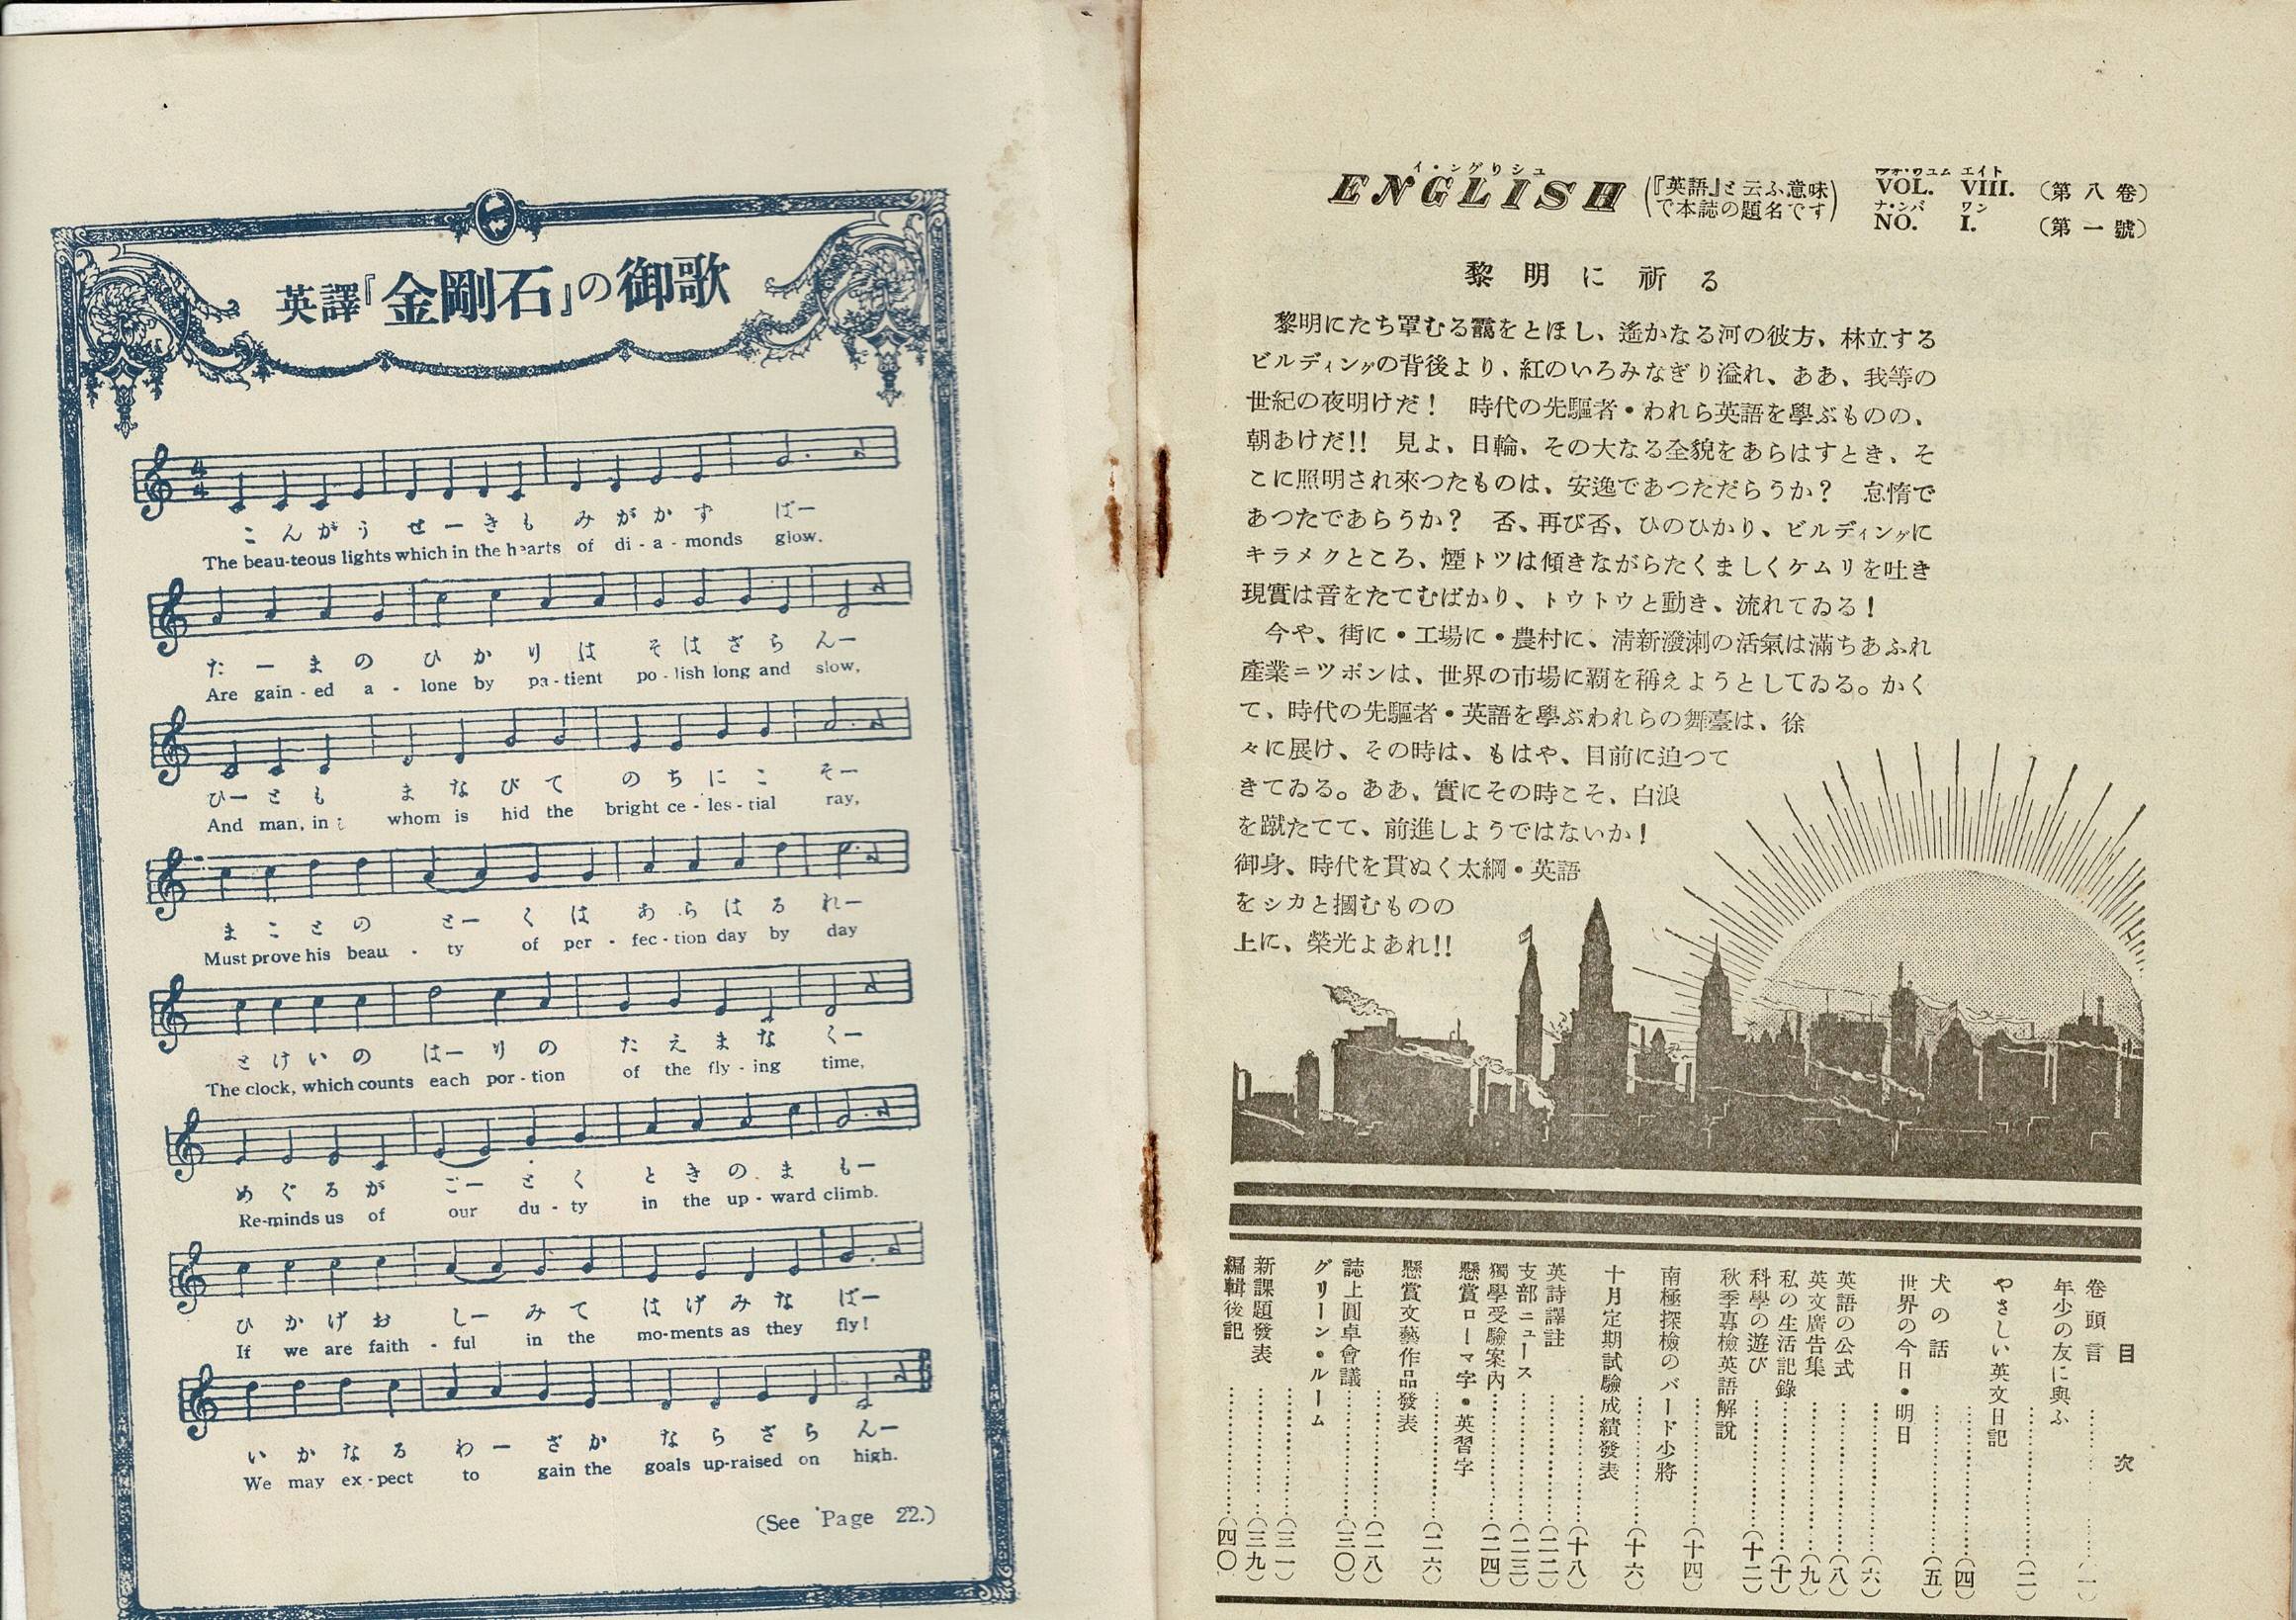 英譯『金剛石』の御歌
こんがうせーきもみがかずばー
The beau-teous lights which in the hearts of di - a - monds glow.
たーまのひかりはそはざらんー
Are gain - ed a - lone by pa - tient po - lish long and slow,
ひーともまなびてのちにこそー
And man, in whom is hid the bright ce - les - tial ray,
まことのとーくはあらはるれー
Must prove his beau - ty of per - fec - tion day by day
とけいのはーりのたえまなくー
The clock, which counts each por - tion of the fly - ing time,
めぐるがごーとくときのまもー
Re-minds us of our du - ty in the up - ward climb.
ひかげおしーみてはげみなばー
If we are faith - ful in the mo-ments as they fly!
いかなるわーざかならざらんー
We may ex - pect to gain the goals up-raised on high.
(See Page 22.)
イ・ングリシュ
ENGLISH (『英語』と云ふ意味で本誌の題名です)
エイト
VOL. VIII. (第八卷)
ナ・ンバ ワン
NO. I. (第一號)
黎明に祈る
黎明にたち罩むる靄をとほし、遙かなる河の彼方、林立する
ビルディングの背後より、紅のいろみなぎり溢れ、ああ、我等の
世紀の夜明けだ！ 時代の先驅者・われら英語を學ぶものの、
朝あけだ!! 見よ、日輪、その大なる全貌をあらはすとき、そ
こに照明され來つたものは、安逸であつただらうか？ 怠惰で
あつたであらうか？ 否、再び否、ひのひかり、ビルディングに
キラメクところ、煙トツは傾きながらたくましくケムリを吐き
現實は音をたてむばかり、トウトウと動き、流れてゐる！
今や、街に・工場に・農村に、淸新潑溂の活氣は滿ちあふれ
產業ニツポンは、世界の市場に覇を稱えようとしてゐる。かく
て、時代の先驅者・英語を學ぶわれらの舞臺は、徐
々に展け、その時は、もはや、目前に迫つて
きてゐる。ああ、實にその時こそ、白浪
を蹴たてて、前進しようではないか！
御身、時代を貫ぬく太綱・英語
をシカと摑むものの
上に、榮光よあれ!!
目次
卷頭言……(一)
年少の友に與ふ……(二)
やさしい英文日記……(四)
犬の話……(五)
世界の今日・明日……(六)
英語の公式……(八)
英文廣告集……(九)
私の生活記錄……(十)
科學の遊び……(十二)
秋季專檢英語解說……(十四)
南極探檢のバード少將……(十六)
十月定期試驗成績發表……(十八)
英詩譯註……(二二)
支部ニュース……(二三)
獨學受驗案內……(二四)
懸賞ローマ字・英習字……(二六)
懸賞文藝作品發表……(二八)
誌上圓卓會議……(三〇)
グリーン・ルーム……(三一)
新課題發表……(三九)
編輯後記……(四〇)